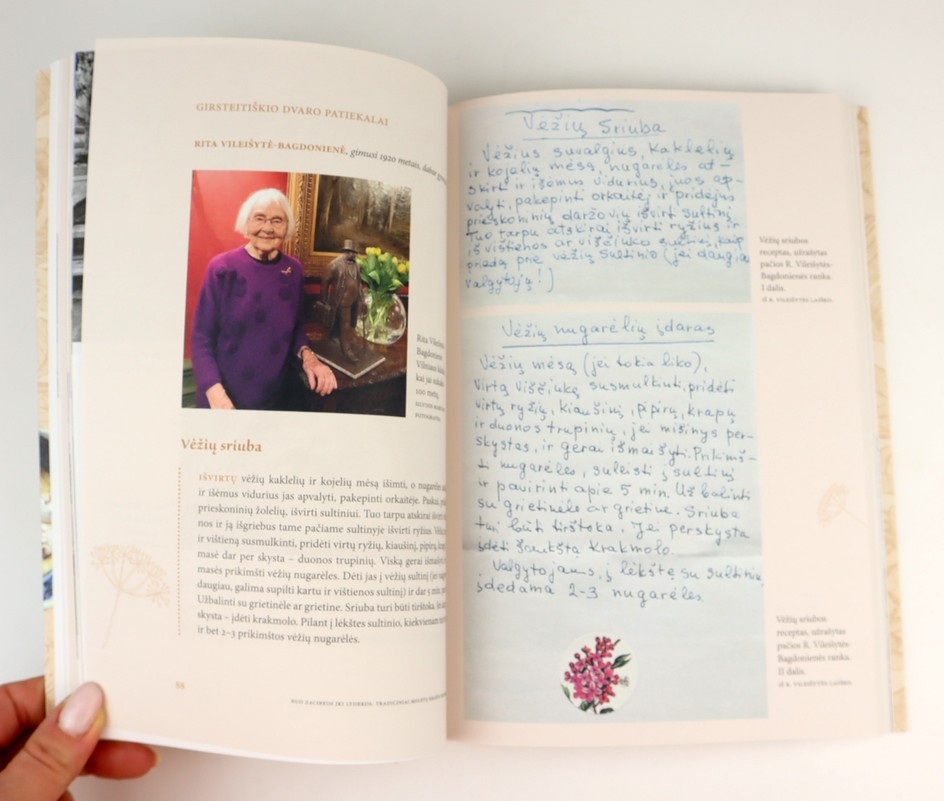 GIRSTEITIŠKIO DVARO PATIEKALAI
RITA VILEIŠYTĖ-BAGDONIENĖ, gimusi 1920 metais, dabar
Rita Vileišytė-
Bagdonienė
Vilniaus
kai jai
100 metų.
Vėžių sriuba
IŠVIRTŲ vėžių kaklelių ir kojelių mėsą išimti, o nugarėles
ir išėmus vidurius jas apvalyti, pakepinti orkaitėje. Paskui,
prieskoninių žolelių, išvirti sultiniui. Tuo tarpu atskirai išvirti
nos ir ją išgriebus tame pačiame sultinyje išvirti ryžius.
ir vištieną susmulkinti, pridėti virtų ryžių, kiaušinį, pipirų,
masė dar per skysta – duonos trupinių. Viską gerai
masės prikimšti vėžių nugarėles. Dėti jas į vėžių sultinį (jei
daugiau, galima supilti kartu ir vištienos sultinį) ir dar 5 min.
Užbalinti su grietinėle ar grietine. Sriuba turi būti tirštoka.
skysta – įdėti krakmolo. Pilant į lėkštes sultinio, kiekvienam
ir bet 2–3 prikimštos vėžių nugarėlės.
88
NUO ZACIRKOS IKI LYDEKOS. TRADICINIAI
Vėžių sriuba
Vėžius suvalgius, kaklelių
ir kojelių mėsą, nugarėles at-
skirti ir išėmus vidurius, juos ap-
valyti, pakepinti orkaitėj ir pridėjus
prieskoninių daržovių išvirt sultinį.
Tuo tarpu atskirai išvirti ryžius ir
iš vištienos ar viščiuko sultinį, kaip
priedą prie vėžių sultinio (jei daugiau
valgytojų!)
Vėžių sriubos
receptas, užrašytas
pačios R. Vileišytės-
Bagdonienės ranka.
I dalis.
IŠ R. VILEIŠYTĖS LAIŠKO.
Vėžių nugarėlių įdaras
Vėžių mėsą (jei tokia liko),
virtą viščiuką susmulkint, pridėti
virtų ryžių, kiaušinį, pipirų, krapų
ir duonos trupinių, jei mišinys per-
skystas, ir gerai išmaišyti. Prikimš-
ti nugarėles, suleisti į sultinį
ir pavirinti apie 5 min. Užbalinti
su grietinėle ar grietine. Sriuba
turi būti tirštoka. Jei perskysta
įdėti šaukštą krakmolo.
Valgytojams, į lėkštę su sultiniu,
įdedama 2-3 nugarėlės
Vėžių sriubos
receptas, užrašytas
pačios R. Vileišytės-
Bagdonienės ranka.
II dalis.
IŠ R. VILEIŠYTĖS LAIŠKO.